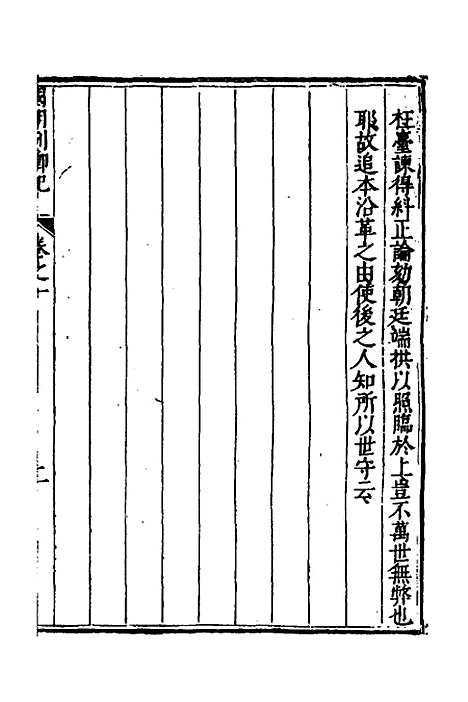 枉臺諫得紏正論劾朝廷端拱以照臨於上豈不萬世無弊也
耶故追本沿革之由使後之人知所以世守云
國朝列卿記
卷之十
二